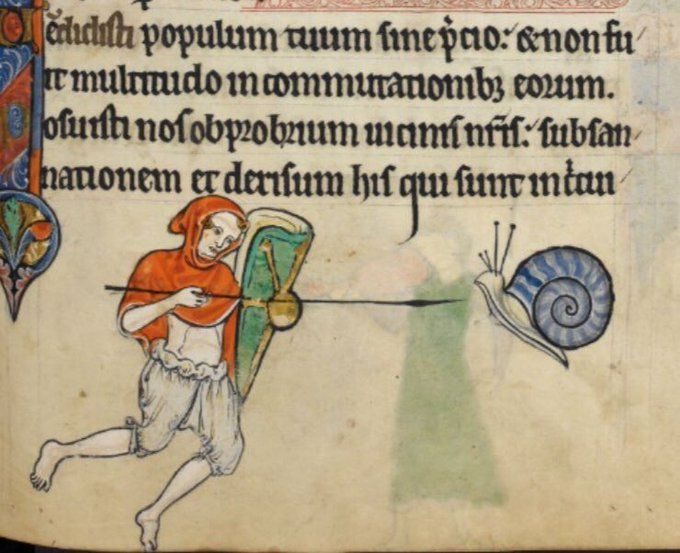 ēdidisti populum tuum sine p̄cio: & non fu
it multitudo in commutationibꝫ eorum.
osuisti nos obprobrium uicinis nr̄is: subsan
nationem et derisum his qui sunt in c̄cui